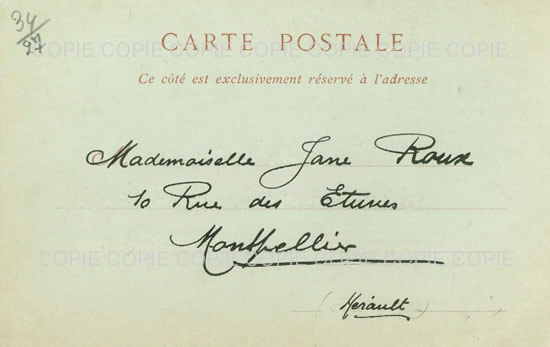 34/27
CARTE POSTALE
COPIE COPIE COPIE COPIE COPIE COPIE COPIE
Ce côté est exclusivement réservé à l'adresse
Mademoiselle Jane Roux
10 Rue des Etuves
Montpellier
COPIE COPIE COPIE COPIE COPIE COPIE COPIE
(Herault)